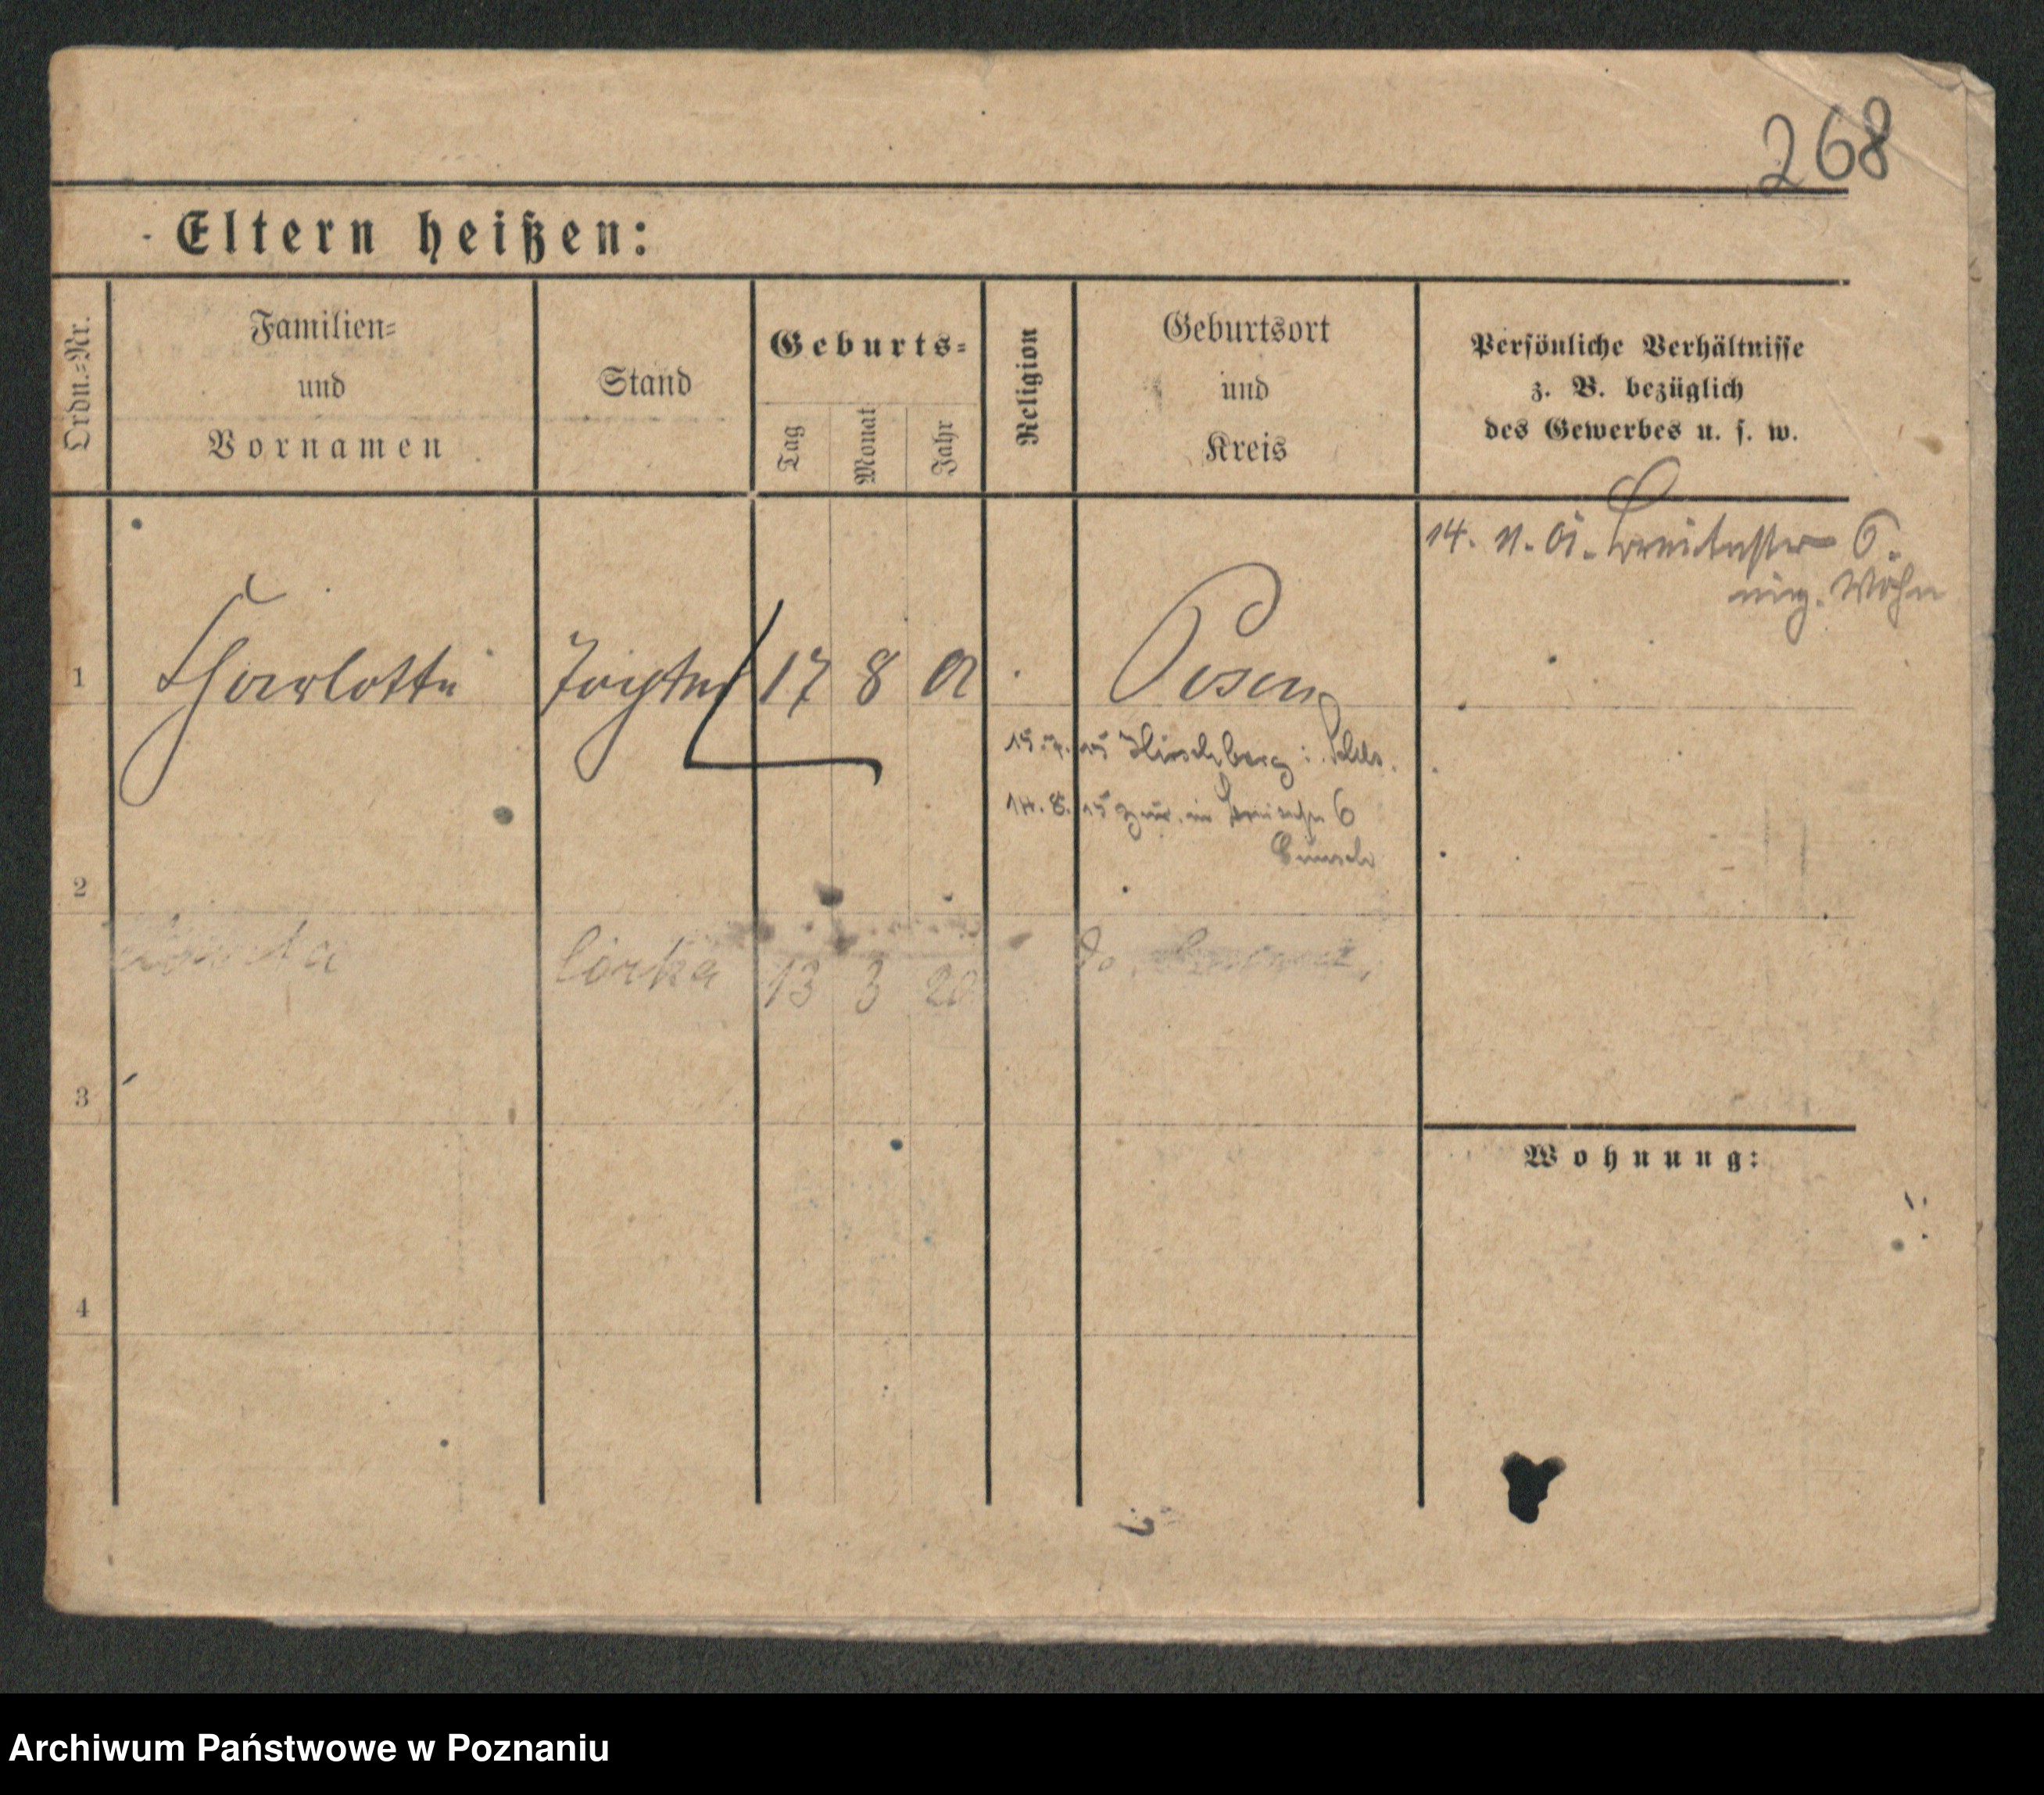 268
Eltern heißen:
Ordn.-Nr.
Familien-
und
Vornamen
Stand
Geburts-
Tag
Monat
Jahr
Religion
Geburtsort
und
Kreis
Persönliche Verhältnisse
z. B. bezüglich
des Gewerbes u. s. w.
14. 11. 6.
1 Charlotte Tochter 17 8 01 Posen
15 Hirschberg i. Schles.
14. 8. 15 zur. in 6
2
córka 13 3 20 do.
3
Wohnung:
4
Archiwum Państwowe w Poznaniu